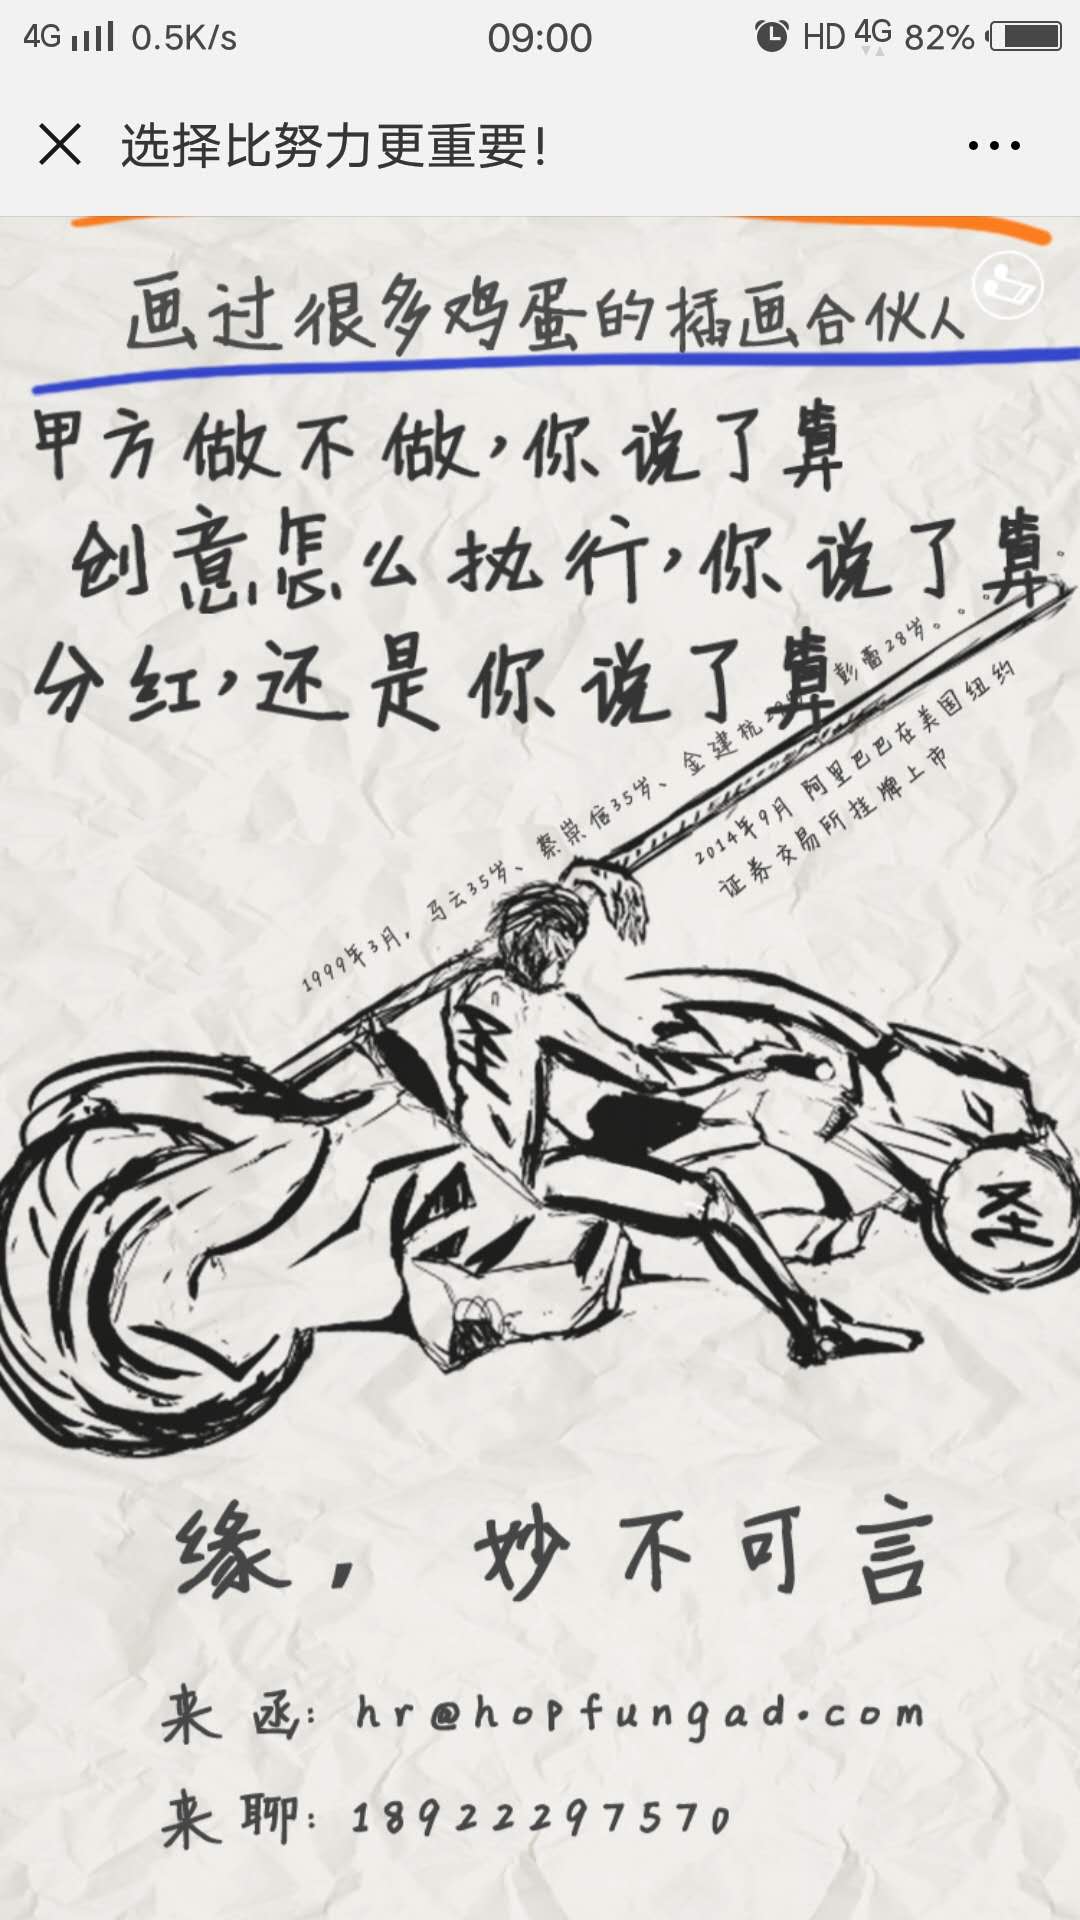 4G 0.5K/s 09:00 HD 4G 82%
选择比努力更重要!
画过很多鸡蛋的插画合伙人
甲方做不做,你说了算
创意怎么执行,你说了算
分红,还是你说了算
1999年3月,马云35岁、蔡崇信35岁、金建杭29岁、彭蕾28岁。。。。
2014年9月 阿里巴巴在美国纽约
证券交易所挂牌上市
圣
缘,妙不可言
来函:hr@hopfungad.com
来聊:18922297570